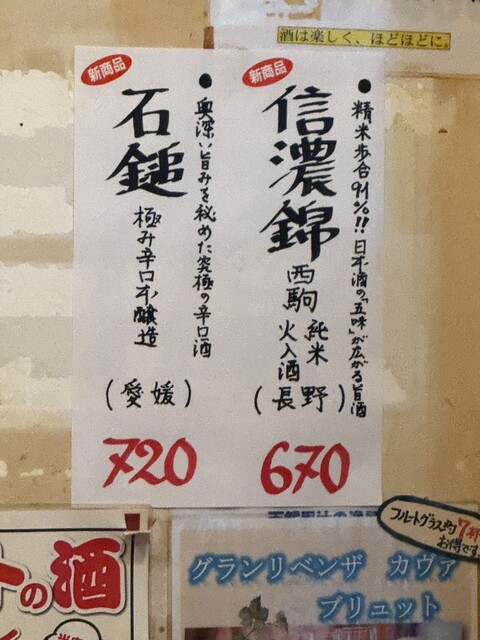 酒は楽しく、ほどほどに。
新商品
●精米歩合91%!!日本酒の「五味」が広がる旨酒
信濃錦
西駒
純米
火入酒
(長野)
670
新商品
●奥深い旨みを秘めた究極の辛口酒
石鎚
極み辛口本醸造
(愛媛)
720
の酒
フルートグラス約7杯
お得です
グランリベンザ カヴァ
ブリュット